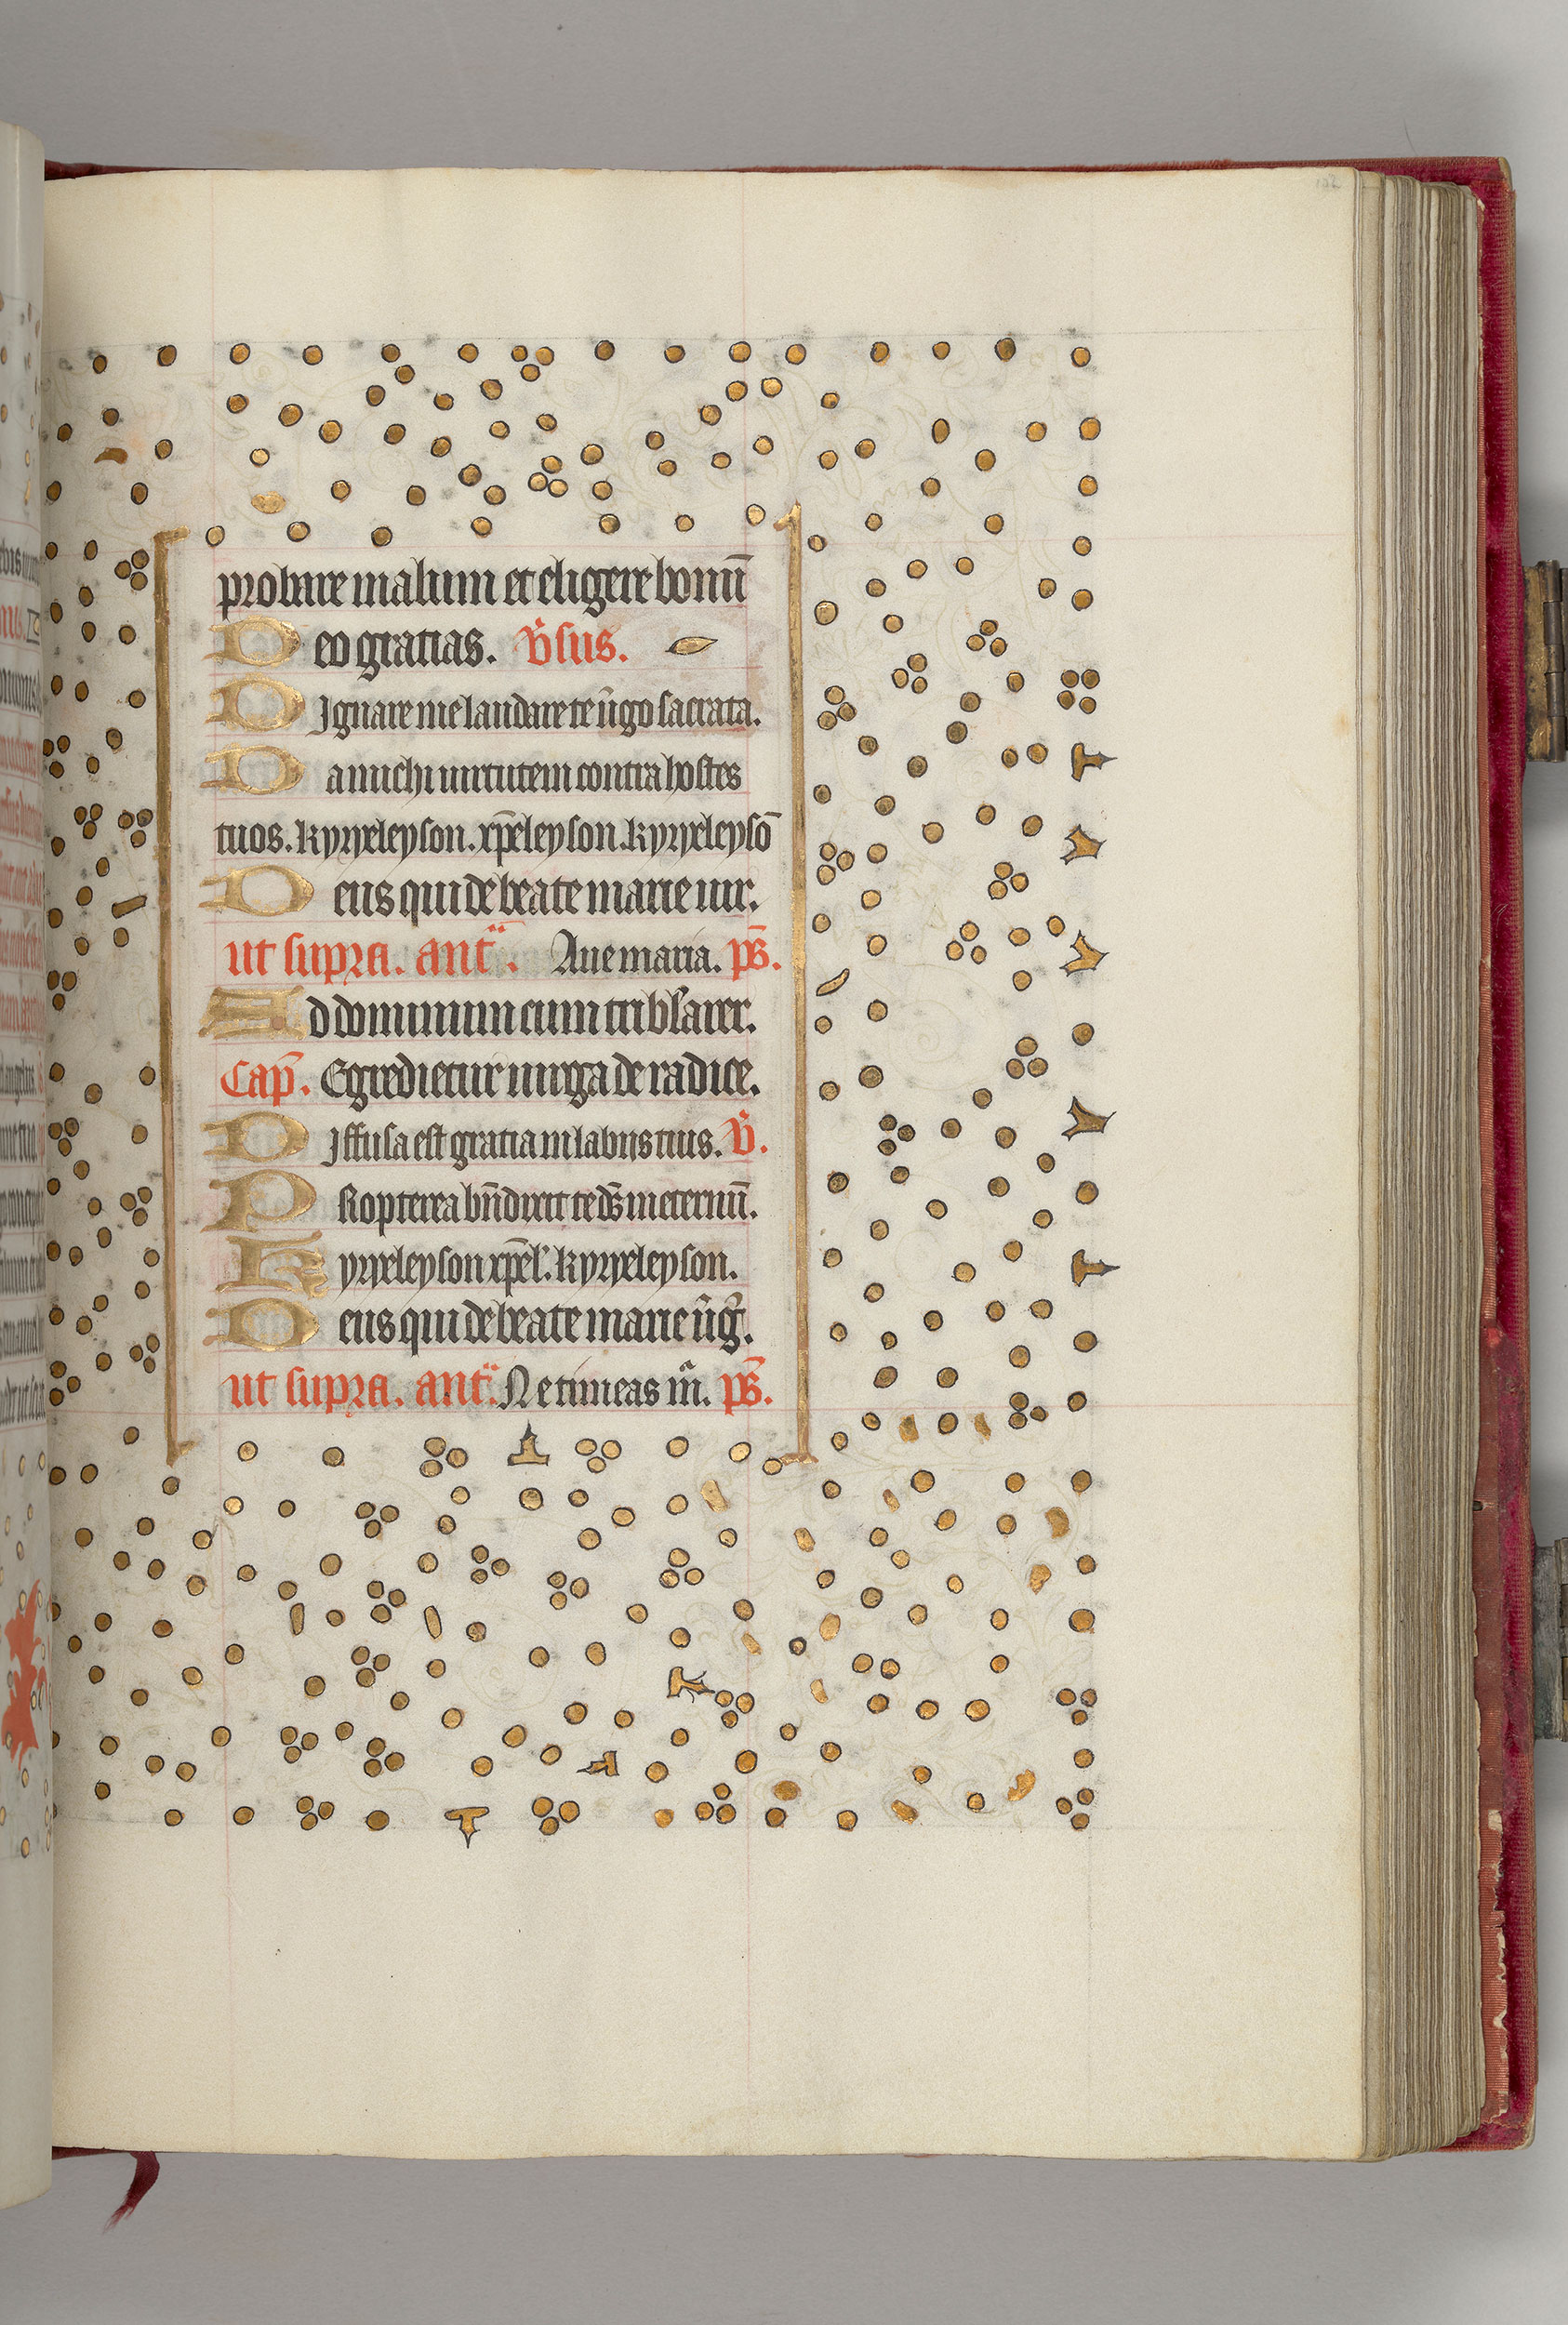 probare malum et eligere bonū
Deo gratias. v̄sus.
Dignare me laudare te v̄go sacrata.
Da michi uirtutem contra hostes
tuos. kyrieleyson. xp̄eleyson. kyrieleysō
Deus qui de beate marie uir.
ut supra. ant̄. Aue maria. ps̄.
Ad dominum cum tribl̄arer.
Cap̄. Egredietur uirga de radice.
Diffusa est gratia in labijs tuis. v̄.
Propterea bn̄dixit te ds̄ in eternū.
Kyrieleyson xp̄el̄. kyrieleyson.
Deus qui de beate marie v̄ḡ.
ut supra. ant̄. Ne timeas m̄. ps̄.